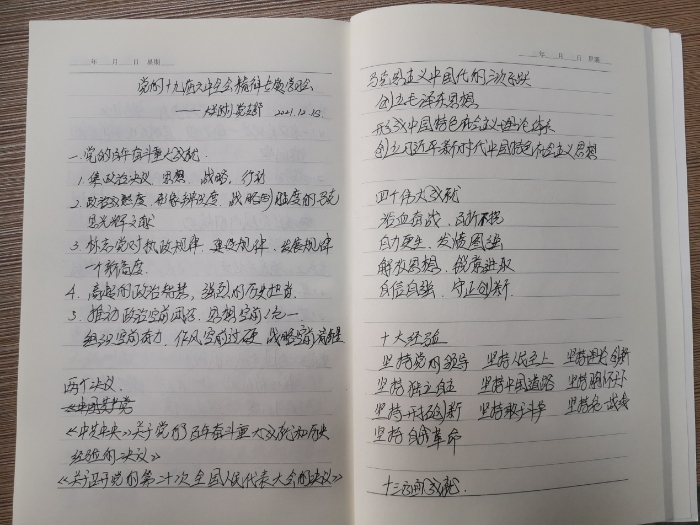 年 月 日 星期
党的十九届六中全会精神与感觉验
2021.12.15
一、党的百年奋斗重大成就
1. 集政治决议、思想、战略、行动
2. 政治成熟度、战略到胜度的马克
思光辉文献
3. 标志党对执政规律、建设规律、发展规律
一个新高度.
4. 高超的政治智慧、强烈的历史担当.
5. 推动政治空前团结、思想空前统一、
组织空前有力、作风空前过硬、战略空前清醒
两个决议.
中国共产党
《中共中央》关于党的百年奋斗重大成就和历史
经验的决议》
《关于召开党的第二十次全国人民代表大会的决议》
年 月 日 星期
马克思主义中国化的三次飞跃
创立毛泽东思想
形成中国特色社会主义理论体系
创立习近平新时代中国特色社会主义思想
四个伟大成就
浴血奋战、百折不挠
自力更生、发愤图强
解放思想、锐意进取
自信自强、守正创新.
十大经验
坚持党的领导 坚持人民至上 坚持理论创新
坚持独立自主 坚持中国道路 坚持胸怀天下
坚持开拓创新 坚持敢于斗争 坚持统一战线
坚持自我革命
十三个方面成就.